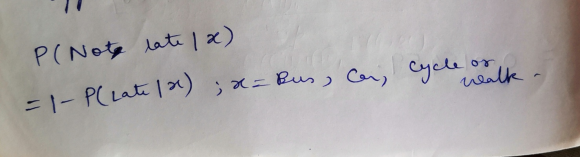 P(Not late | x)
= 1 - P(Late | x) ; x = Bus, Car, cycle or walk.